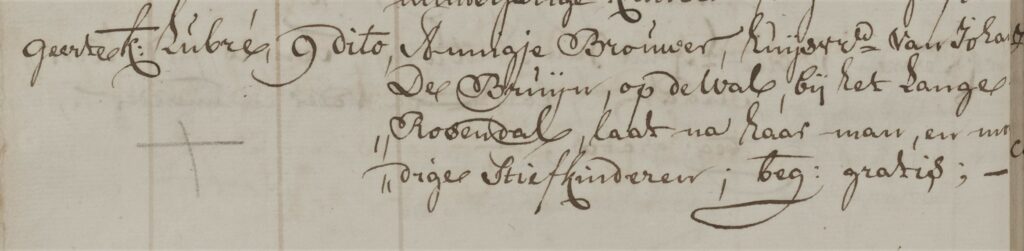 Geertek: Lubré, 9 dito, Annigje Brouwer, huijsvr: van Joha
De Bruijn, op de Wal, bij het Lange
„Rosendal, laat na haar man, en mo
„dige Stiefkinderen; beg: gratis; —